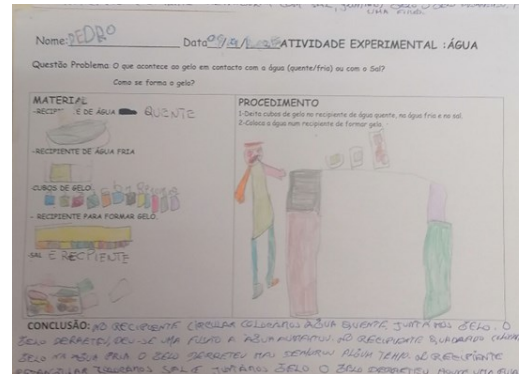 UMA FINAL
Nome: PEDRO Data ATIVIDADE EXPERIMENTAL :ÁGUA
Questão Problema: O que acontece ao gelo em contacto com a água (quente/fria) ou com o Sal?
Como se forma o gelo?
MATERIAL
-RECIPIENTE DE ÁGUA QUENTE
-RECIPIENTE DE ÁGUA FRIA
CUBOS DE GELO
- RECIPIENTE PARA FORMAR GELO.
-SAL E RECIPIENTE
PROCEDIMENTO
1-Deita cubos de gelo no recipiente de água quente, na água fria e no sal.
2-Coloca a água num recipiente de formar gelo.
CONCLUSÃO: NO RECIPIENTE CIRCULAR COLOCAMOS ÁGUA QUENTE, JUNTAMOS GELO. O
GELO DERRETEU, DEU-SE UMA FUSÃO A ÁGUA AUMENTOU. NO RECIPIENTE QUADRADO
GELO NA ÁGUA FRIA O GELO DERRETEU MAS DEMOROU ALGUM TEMPO. NO RECIPIENTE
RETANGULAR COLOCAMOS SAL E JUNTAMOS GELO O GELO DERRETEU HOUVE UMA